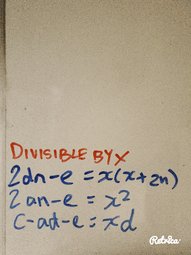 DIVISIBLE BY X
2dn-e = x(x+2n)
2an-e = x²
c-ad-e = xd
Retrica